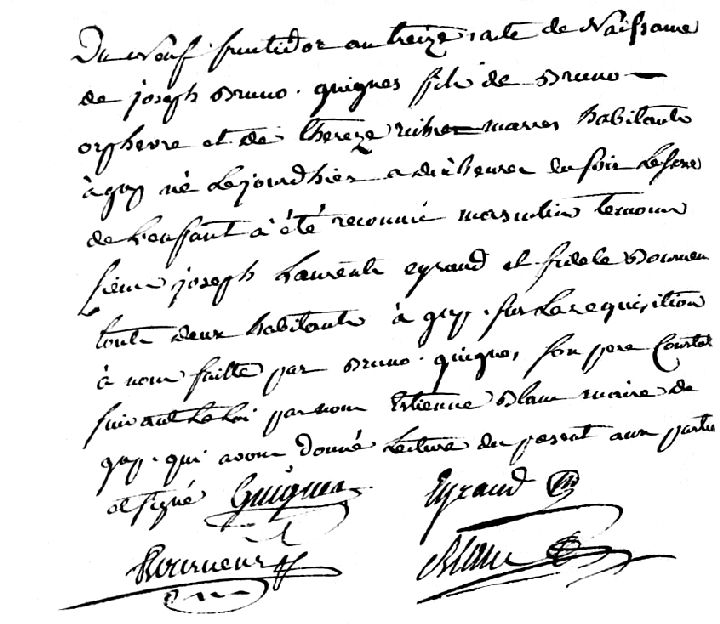 Du neuf fructidor an treize acte de Naissance
de joseph Bruno guigues fils de Bruno
orphevre et de thereze mariés habitants
à gap né le jourdhier a dix heures du soir le sexe
de l'enfant à été reconnu masculin temoins
sieurs joseph Laurents eyraud et fidele Bourneur
touts deux habitants à gap. sur la requisition
à nous faitte par Bruno guigues, son pere Constaté
suivant la loi par nous Estienne Blanc maire de
gap. qui avons donné lecture du present aux parties
et signé Guigues Eyraud
Bourneur Blanc